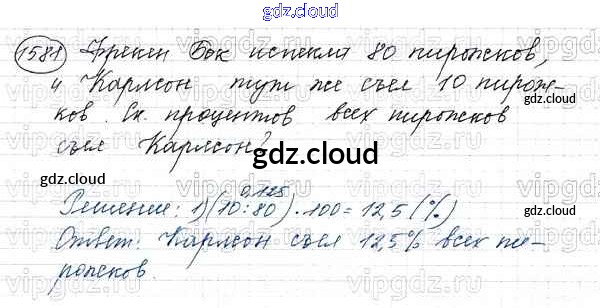 gdz.cloud
1588 Фрекен Бок испекла 80 пирожков,
и Карлсон тут же съел 10 пирож-
gdz.cloud
ков. Ск. процентов всех пирожков
съел Карлсон?
gdz.cloud
gdz.cloud
0,125
Решение: 1) (10:80)·100=12,5 (%)
Ответ: Карлсон съел 12,5% всех пи-
рожков.
gdz.cloud
vipgdz